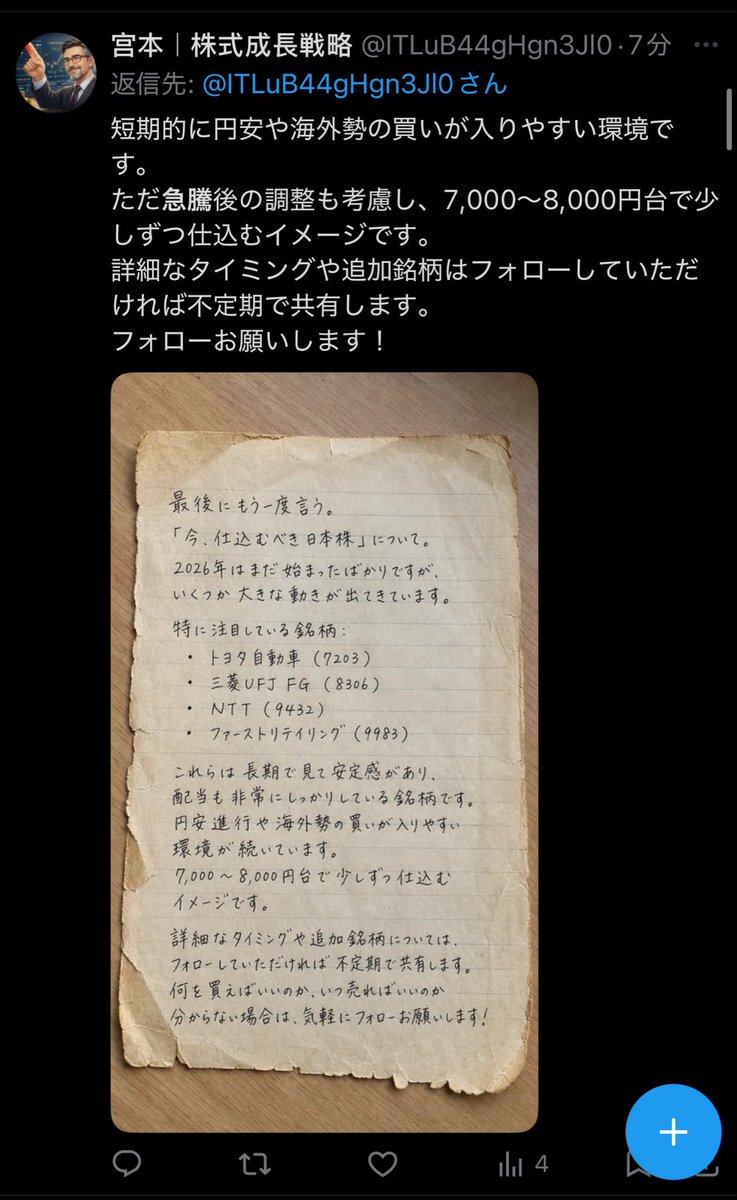 宮本｜株式成長戦略 @ITLuB44gHgn3Jl0・7分
返信先: @ITLuB44gHgn3Jl0さん
短期的に円安や海外勢の買いが入りやすい環境で
す。
ただ急騰後の調整も考慮し、7,000〜8,000円台で少
しずつ仕込むイメージです。
詳細なタイミングや追加銘柄はフォローしていただ
ければ不定期で共有します。
フォローお願いします！
最後にもう一度言う。
「今、仕込むべき日本株」について。
2026年はまだ始まったばかりですが、
いくつか大きな動きが出てきています。
特に注目している銘柄：
・トヨタ自動車（7203）
・三菱UFJ FG（8306）
・NTT（9432）
・ファーストリテイリング（9983）
これらは長期で見て安定感があり、
配当も非常にしっかりしている銘柄です。
円安進行や海外勢の買いが入りやすい
環境が続いています。
7,000〜8,000円台で少しずつ仕込む
イメージです。
詳細なタイミングや追加銘柄については、
フォローしていただければ不定期で共有します。
何を買えばいいのか、いつ売ればいいのか
分からない場合は、気軽にフォローお願いします！
4